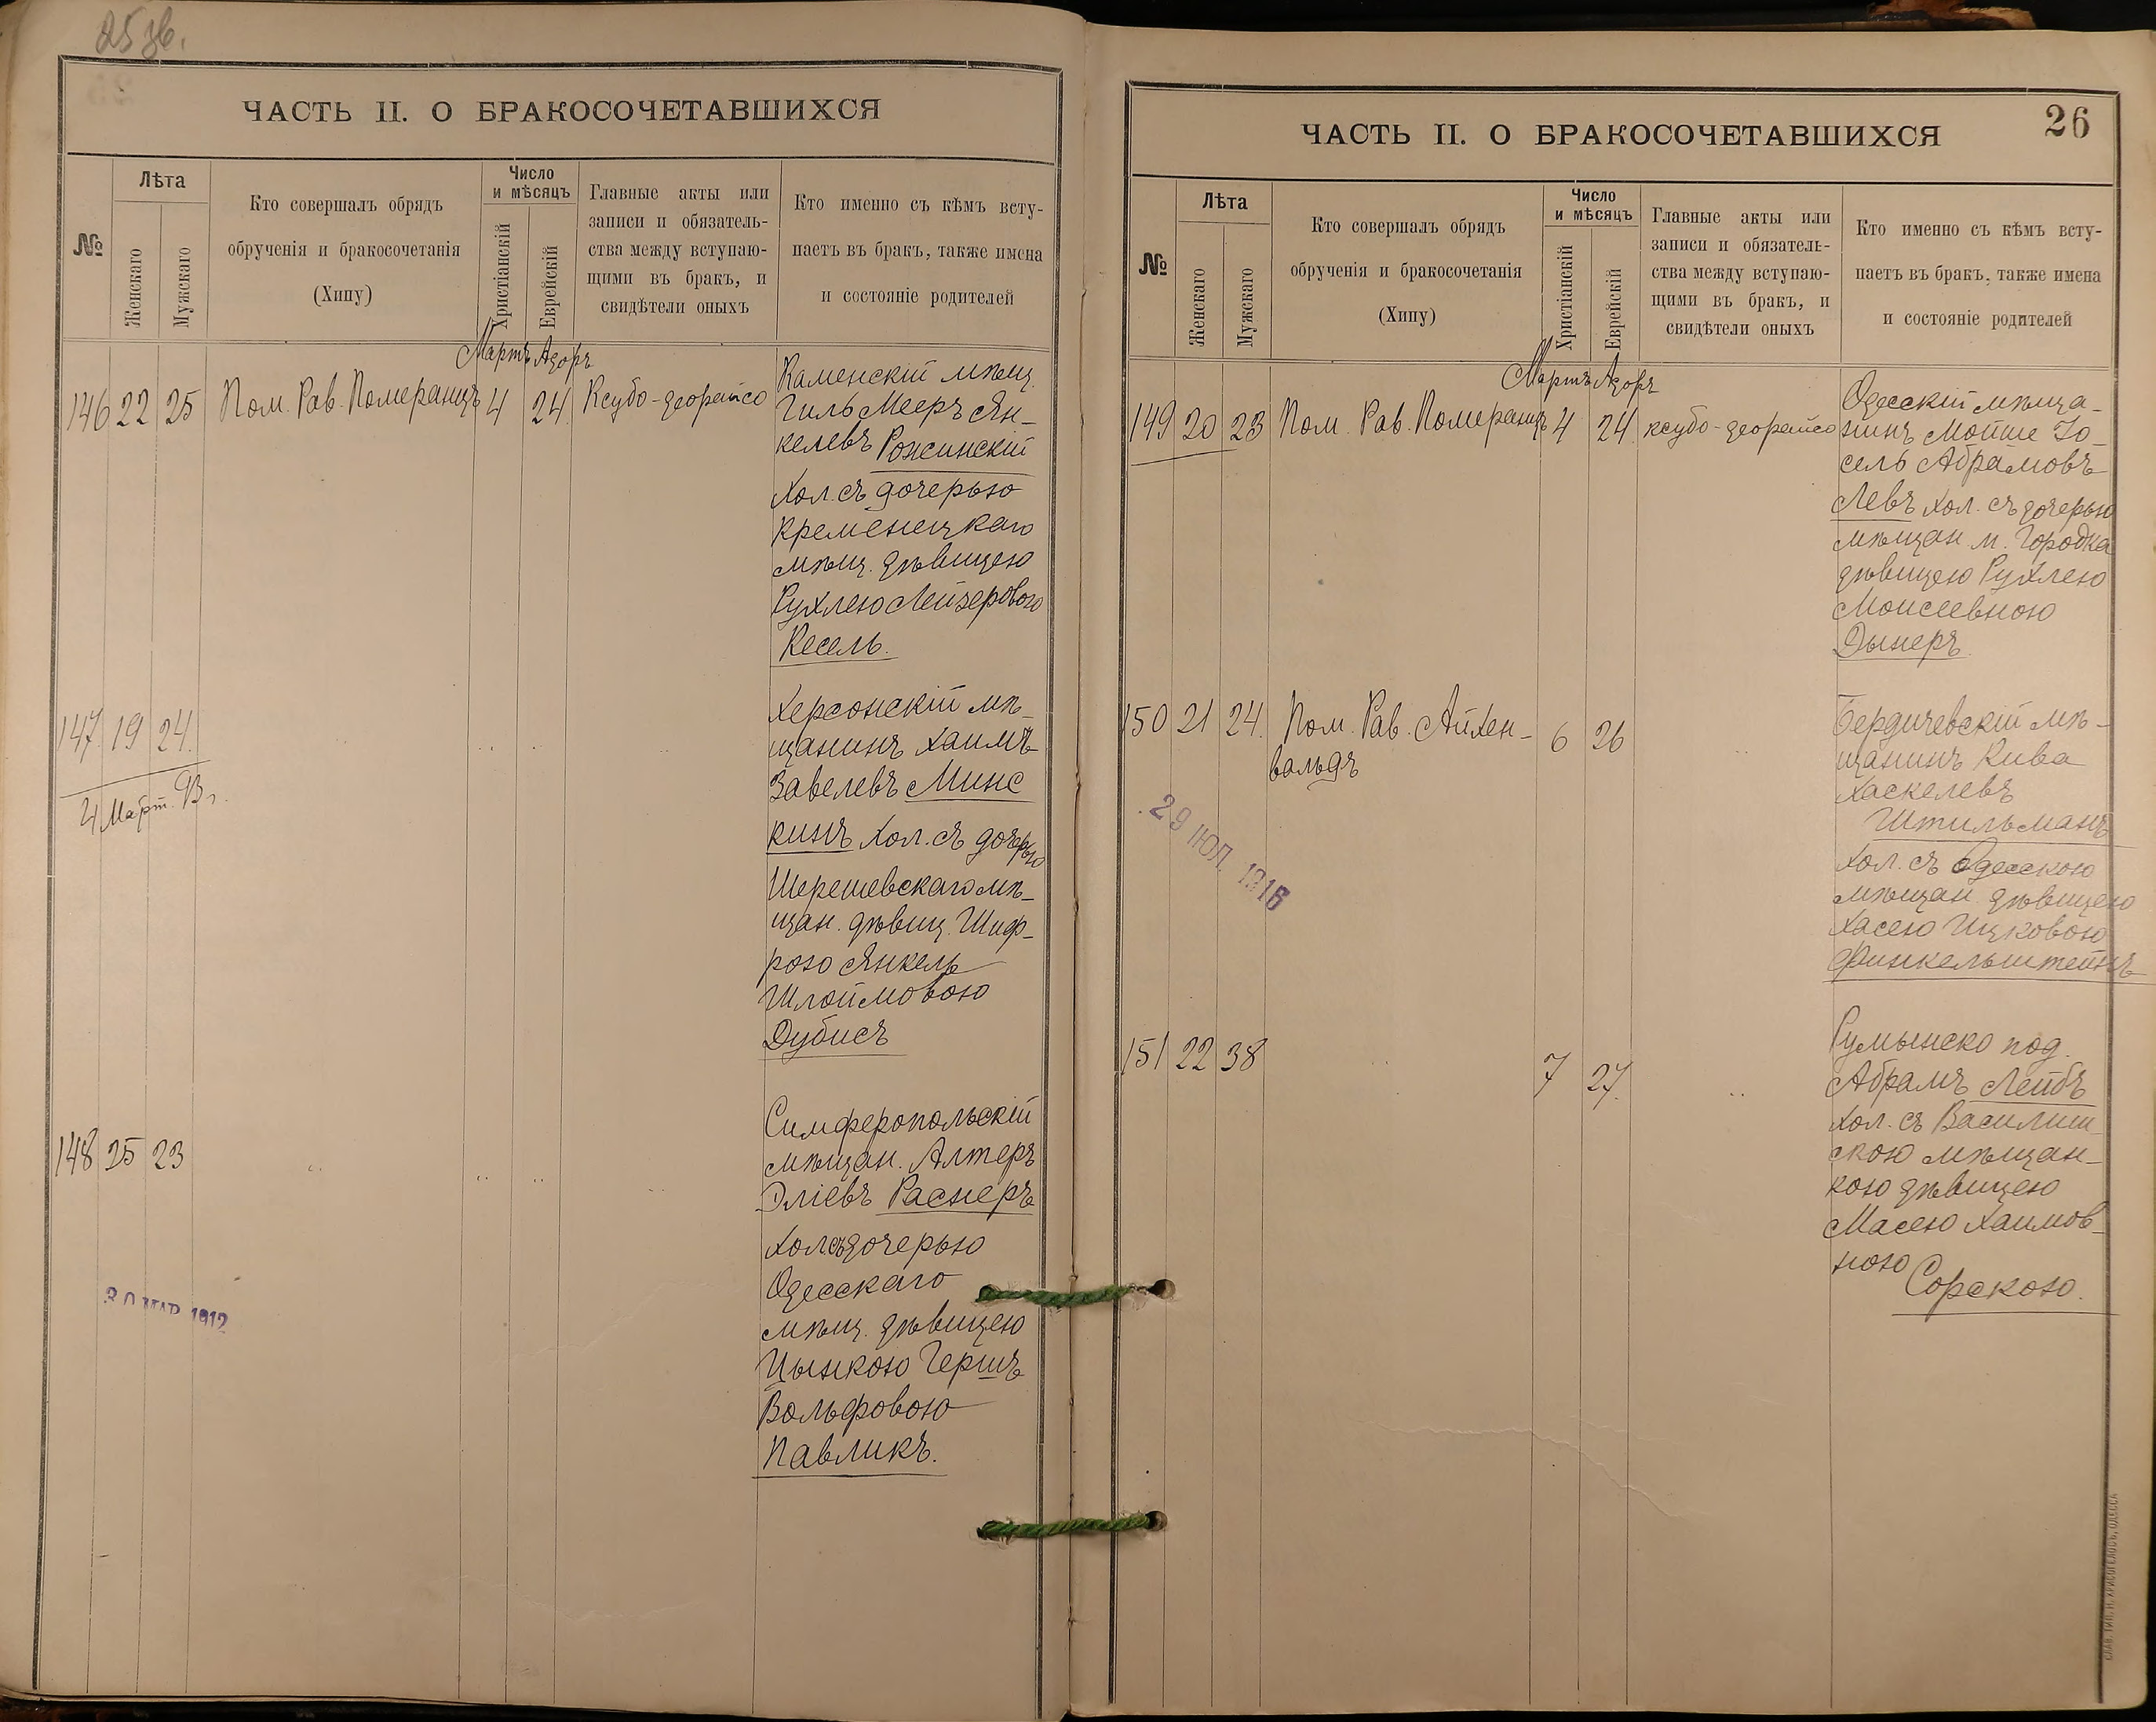 25 зв.
ЧАСТЬ II. О БРАКОСОЧЕТАВШИХСЯ
№
Лѣта
Женскаго
Мужскаго
Кто совершалъ обрядъ
обрученія и бракосочетанія
(Хипу)
Число
и мѣсяцъ
Христіанскій
Еврейскій
Главные акты или
записи и обязатель-
ства между вступаю-
щими въ бракъ, и
свидѣтели оныхъ
Кто именно съ кѣмъ всту-
паетъ въ бракъ, также имена
и состояніе родителей
Мартъ Адоръ
146 22 25 Пом. Рав. Померанцъ 4 24 Ксубо-деорайсо
Каменскій мѣщ.
Гиль Мееръ Ян-
келевъ Рожинскій
хол. съ дочерью
Кременецкаго
мѣщ. дѣвицею
Рухлею Лейзеровою
Кесель.
147 19 24.
4 Март. 93 г.
Херсонскій мѣ-
щанинъ Хаимъ
Завелевъ Минс
кинъ хол. съ дочерью
Шерешевскаго мѣ-
щан. дѣвиц. Шиф-
рою Янкель
Шлоймовою
Дубисъ
148 25 23
30 МАР. 1912
Симферопольскій
мѣщан. Алтеръ
Эліевъ Раснеръ
хол съ дочерью
Одесскаго
мѣщ. дѣвицею
Цынкою Гершъ
Вольфовою
Павликъ.
ЧАСТЬ II. О БРАКОСОЧЕТАВШИХСЯ
26
№
Лѣта
Женскаго
Мужскаго
Кто совершалъ обрядъ
обрученія и бракосочетанія
(Хипу)
Число
и мѣсяцъ
Христіанскій
Еврейскій
Главные акты или
записи и обязатель-
ства между вступаю-
щими въ бракъ, и
свидѣтели оныхъ
Кто именно съ кѣмъ всту-
паетъ въ бракъ, также имена
и состояніе родителей
Мартъ Адоръ
149 20 23 Пом. Рав. Померанцъ 4 24 ксубо-деорайсо
Одесскій мѣща-
нинъ Мойше Іо-
сель Абрамовъ
Левъ хол. съ дочерью
мѣщан. м. Городка
дѣвицею Рухлею
Моисеевною
Дынеръ
150 21 24. Пом. Рав. Айхен-
вальдъ
6 26
29 ІЮЛ. 1916
Бердичевскій мѣ-
щанинъ Кива
Хаскелевъ
Штильманъ
хол. съ Одесскою
мѣщан. дѣвицею
Хасею Ицковою
Финкельштейнъ
151 22 38 7 27.
Румынско под.
Абрамъ Лейбъ
хол. съ Василиш
скою мѣщан-
кою дѣвицею
Масею Хаимов-
ною Сорскою.
СЛАВ. ТИП. Н. ХРИСОГЕЛОСЪ, ОДЕССА